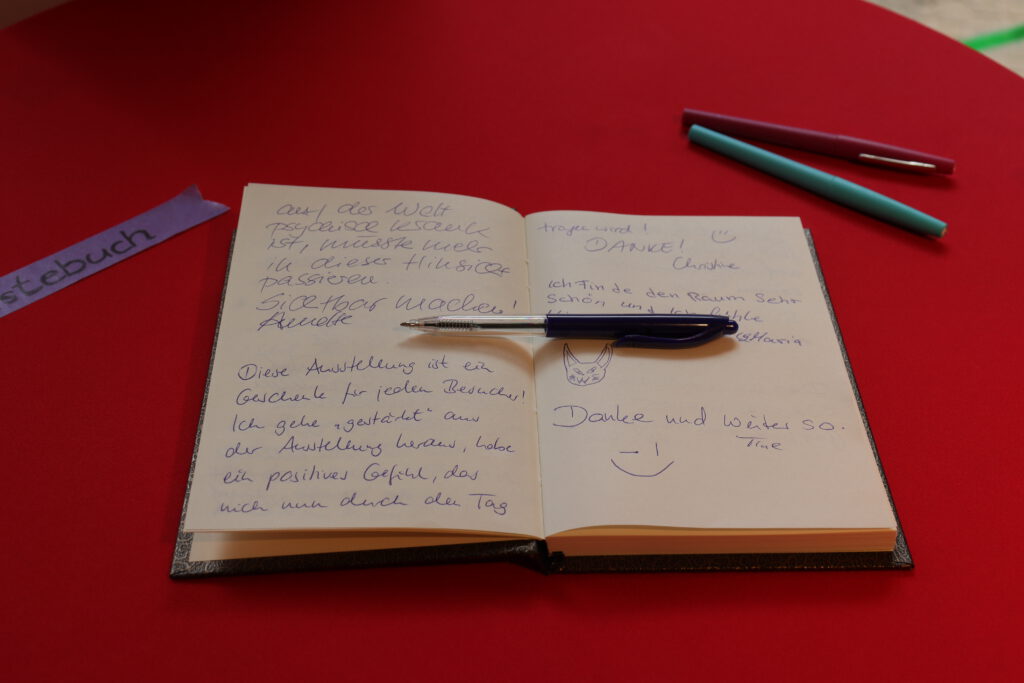 stebuch
auf der Welt
psychisch krank
ist, müsste mehr
in dieser Hinsicht
passieren.
Sichtbar machen!
Annette
Diese Ausstellung ist ein
Geschenk für jeden Besucher!
Ich gehe „gestärkt" aus
der Ausstellung heraus, habe
ein positives Gefühl, das
mich nun durch den Tag
tragen wird!
DANKE!
Christine
Ich finde den Raum sehr
schön und ich fühle
Maria
Danke und weiter so.
Tine